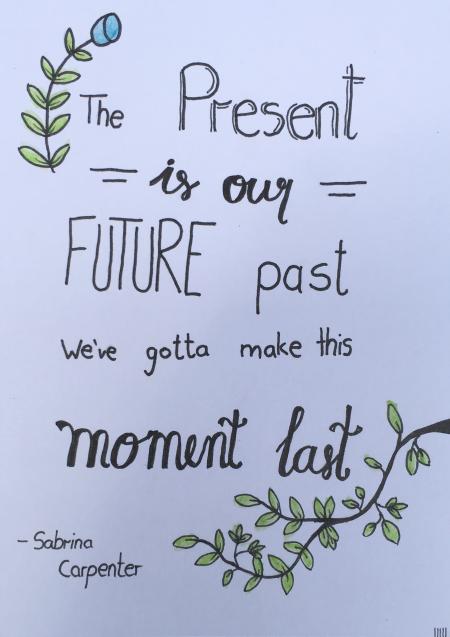 The Present
= is our =
FUTURE past
We've gotta make this
moment last
- Sabrina
Carpenter